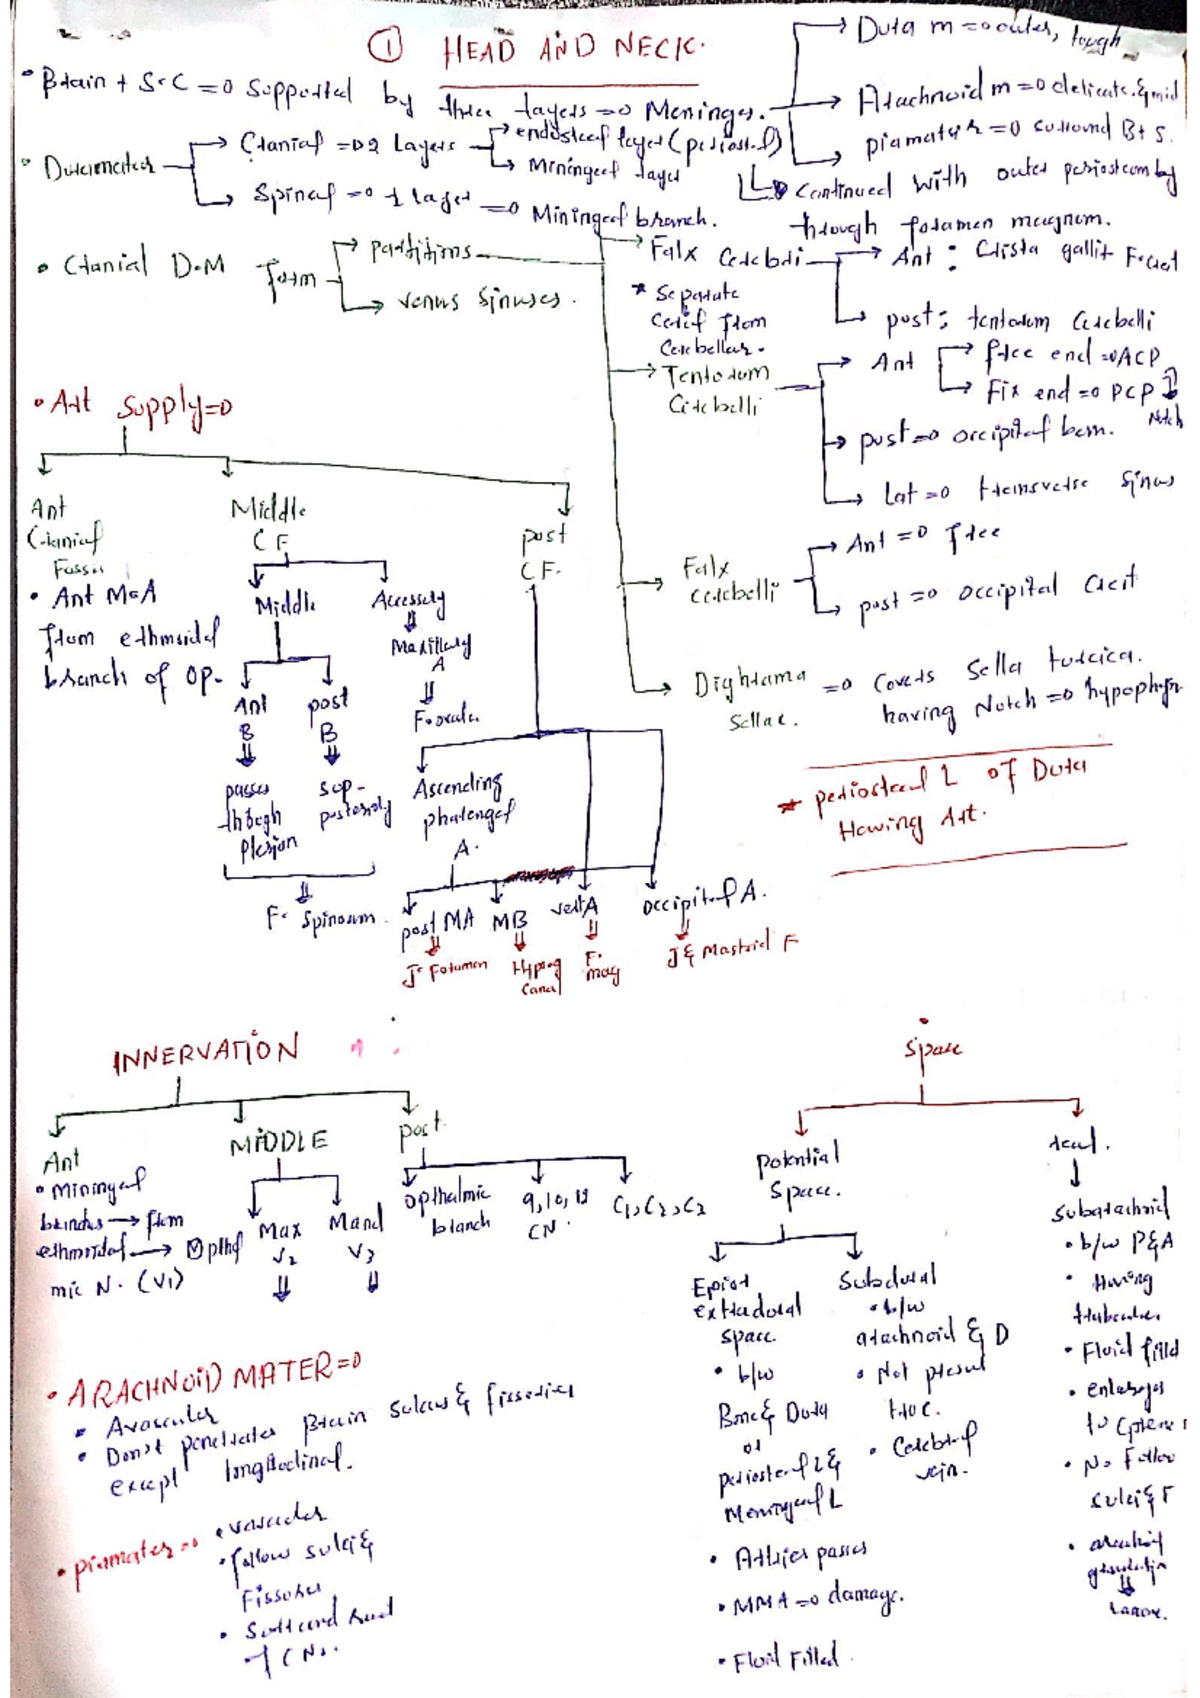 ① HEAD AND NECK.
• Brain + S.C ⇒ Supported by three layers ⇒ Meninges.
Dura m ⇒ outer, tough
Arachnoid m ⇒ delicate & mid
piamater ⇒ surround B + S.
• Duramater
Cranial ⇒ 2 Layers
endosteal layer (periosteal)
Miningeal layer
Spinal ⇒ 1 layer ⇒ Miningeal branch.
Continued with outer periosteum by
through foramen magnum.
• Cranial D.M form
partitions
venus sinuses.
Falx Cerebri
Ant : Crista galli & F.crest
post : tentorum Cerebelli
* Separate
from
Cerebellar.
Tentorum
Cerebelli
Ant
free end ⇒ ACP
Fix end ⇒ PCP
Notch
post ⇒ occipital bom.
Lat ⇒ transverse Sinus
Falx
cerebelli
Ant ⇒ free
post ⇒ occipital Crest
Dighrama
Sellae.
⇒ Covers Sella turcica.
having Notch ⇒ hypophy
* periosteal L of Dura
Having Art.
• Art Supply ⇒
Ant
Cranial
Fossa
• Ant M.A
from ethmoidal
branch of OP.
Middle
CF
Middle
Ant
B
passes
through
Plerion
post
B
sup-
posteroly
F. Spinosum.
Accessory
Maxillary
A
F. ovale.
post
CF.
Ascending
pharengeal
A.
post MA
J. Foramen
MB
Hypog
Canal
vert A
F.
mag
occipital A.
J & Mastoid F
INNERVATION
Ant
• Miningeal
branches → from
ethmoidal → Opthal
mic N. (V1)
MIDDLE
Max
V2
Mand
V3
post.
opthalmic
branch
9, 10, 12
CN.
C1, C2, C3
Space
potential
Space.
Epi or
extradural
space.
• b/w
Bone & Dura
or
periosteal L &
Meningeal L
• Artries passes
• MMA ⇒ damage.
• Fluid Filled.
Subdural
• b/w
arachnoid & D
• Not present
truc.
• Cerebral
vein.
real.
Subarachnoid
• b/w P & A
• Having
trabeculae.
• Fluid filld
• enlarges
to
• No Follow
sulci & F
• arachnoid
granulation
• ARACHNOID MATER ⇒
• Avascular
• Don't penetrates Brain sulcus & fissories
except longitudinal.
• piamater ⇒
• vascular
• follow sulci &
Fissures
• Surround
CNs.